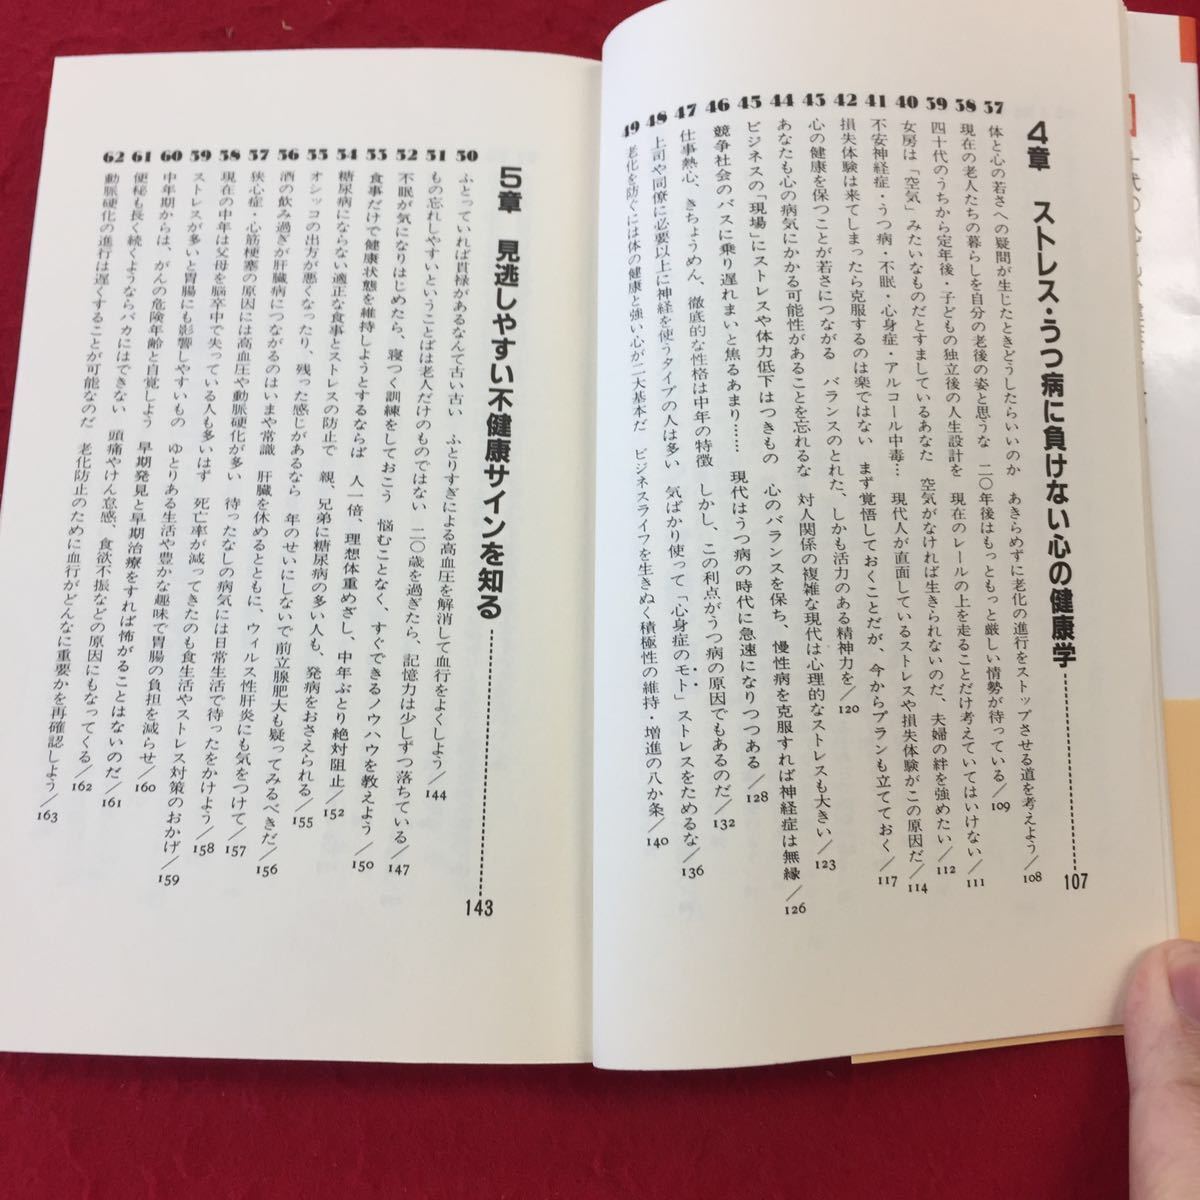 4章 ストレス・うつ病に負けない心の健康学 107
37 体と心の若さへの疑問が生じたときどうしたらいいのか あきらめずに老化の進行をストップさせる道を考えよう/108
38 現在の老人たちの暮らしを自分の老後の姿と思うな 二〇年後はもっともっと厳しい情勢が待っている/109
39 四十代のうちから定年後・子どもの独立後の人生設計を 現在のレールの上を走ることだけ考えていてはいけない/111
40 女房は「空気」みたいなものだとすましているあなた 空気がなければ生きられないのだ、夫婦の絆を強めたい/112
41 不安神経症・うつ病・不眠・心身症・アルコール中毒… 現代人が直面しているストレスや損失体験がこの原因だ/114
42 損失体験は来てしまったら克服するのは楽ではない まず覚悟しておくことだが、今からプランも立てておく/117
43 心の健康を保つことが若さにつながる バランスのとれた、しかも活力のある精神力を/120
44 あなたも心の病気にかかる可能性があることを忘れるな 対人関係の複雑な現代は心理的なストレスも大きい/123
45 ビジネスの「現場」にストレスや体力低下はつきもの 心のバランスを保ち、慢性病を克服すれば神経症は無縁/126
46 競争社会のバスに乗り遅れまいと焦るあまり…… 現代はうつ病の時代に急速になりつつある/128
47 仕事熱心、きちょうめん、徹底的な性格は中年の特徴 しかし、この利点がうつ病の原因でもあるのだ/132
48 上司や同僚に必要以上に神経を使うタイプの人は多い 気ばかり使って「心身症のモト」ストレスをためるな/136
49 老化を防ぐには体の健康と強い心が二大基本だ ビジネスライフを生きぬく積極性の維持・増進の八か条/140
5章 見逃しやすい不健康サインを知る 143
50 ふとっていれば貫禄があるなんて古い古い ふとりすぎによる高血圧を解消して血行をよくしよう/144
51 もの忘れしやすいということばは老人だけのものではない 二〇歳を過ぎたら、記憶力は少しずつ落ちている/147
52 不眠が気になりはじめたら、寝つく訓練をしておこう 悩むことなく、すぐできるノウハウを教えよう/150
53 食事だけで健康状態を維持しようとするならば 人一倍、理想体重めざし、中年ぶとり絶対阻止/152
54 糖尿病にならない適正な食事とストレスの防止で 親、兄弟に糖尿病の多い人も、発病をおさえられる/155
55 オシッコの出方が悪くなったり、残った感じがあるなら 年のせいにしないで前立腺肥大も疑ってみるべきだ/156
56 酒の飲み過ぎが肝臓病につながるのはいまや常識 肝臓を休めるとともに、ウィルス性肝炎にも気をつけて/157
57 狭心症・心筋梗塞の原因には高血圧や動脈硬化が多い 待ったなしの病気には日常生活で待ったをかけよう/158
58 現在の中年は父母を脳卒中で失っている人も多いはず 死亡率が減ってきたのも食生活やストレス対策のおかげ/159
59 ストレスが多いと胃腸にも影響しやすいもの ゆとりある生活や豊かな趣味で胃腸の負担を減らせ/160
60 中年期からは、がんの危険年齢と自覚しよう 早期発見と早期治療をすれば怖がることはないのだ/161
61 便秘も長く続くようならバカにはできない 頭痛やけん怠感、食欲不振などの原因にもなってくる/162
62 動脈硬化の進行は遅くすることが可能なのだ 老化防止のために血行がどんなに重要かを再確認しよう/163